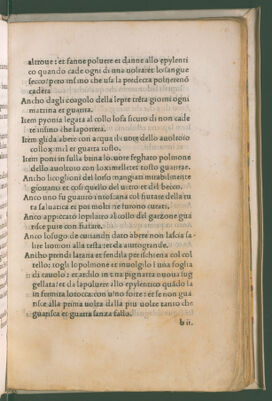 altroue : et fanne poluere et danne allo epylenti
co quando cade ogni di una uolta: et lo sangue
secco: pero insino che usa la predecta poluere no
cadera
Ancho dagli coagolo della lepre trēta giorni ogni
mattina et guarra.
Item pyonia legata al collo sta sicuro di non cade
re insino che la portera.
Item gli da abere con acqua il cuore dello auoltoio
col lox: mel: et guarra tosto.
Item poni in sulla brina lo cuore feghato polmone
dello auoltoio con loximelli: et tosto guarra.
Ancho li coglioni del lorso mangiati mirabilmente
giouano et cosi quello del uerro et del becco.
Anco uno fu guarito in toscana col fiutare della ru
ta saluatica et poi molte ne furono curati.
Anco appiccato lo pilatro al collo del garzone gua
risce pure con fiutare.
Anco lo sugo de cinandri dato abere non lascia sa
lire lo fumo alla testa: et da aiuto grande.
Ancho prendi la rana et fendila per schiena col col
tello: togli lo polmone et inuolgilo i una foglia
di cauolo: et ardilo in una pignatta nuoua sug
gellata: et da la poluere allo epylentico quādo la
infirmita lo tocca: con uino forte: et se non gua
risce alla prima uolta di la piu uolte tanto che
guarisca et guarra sanza fallo.
b ii.